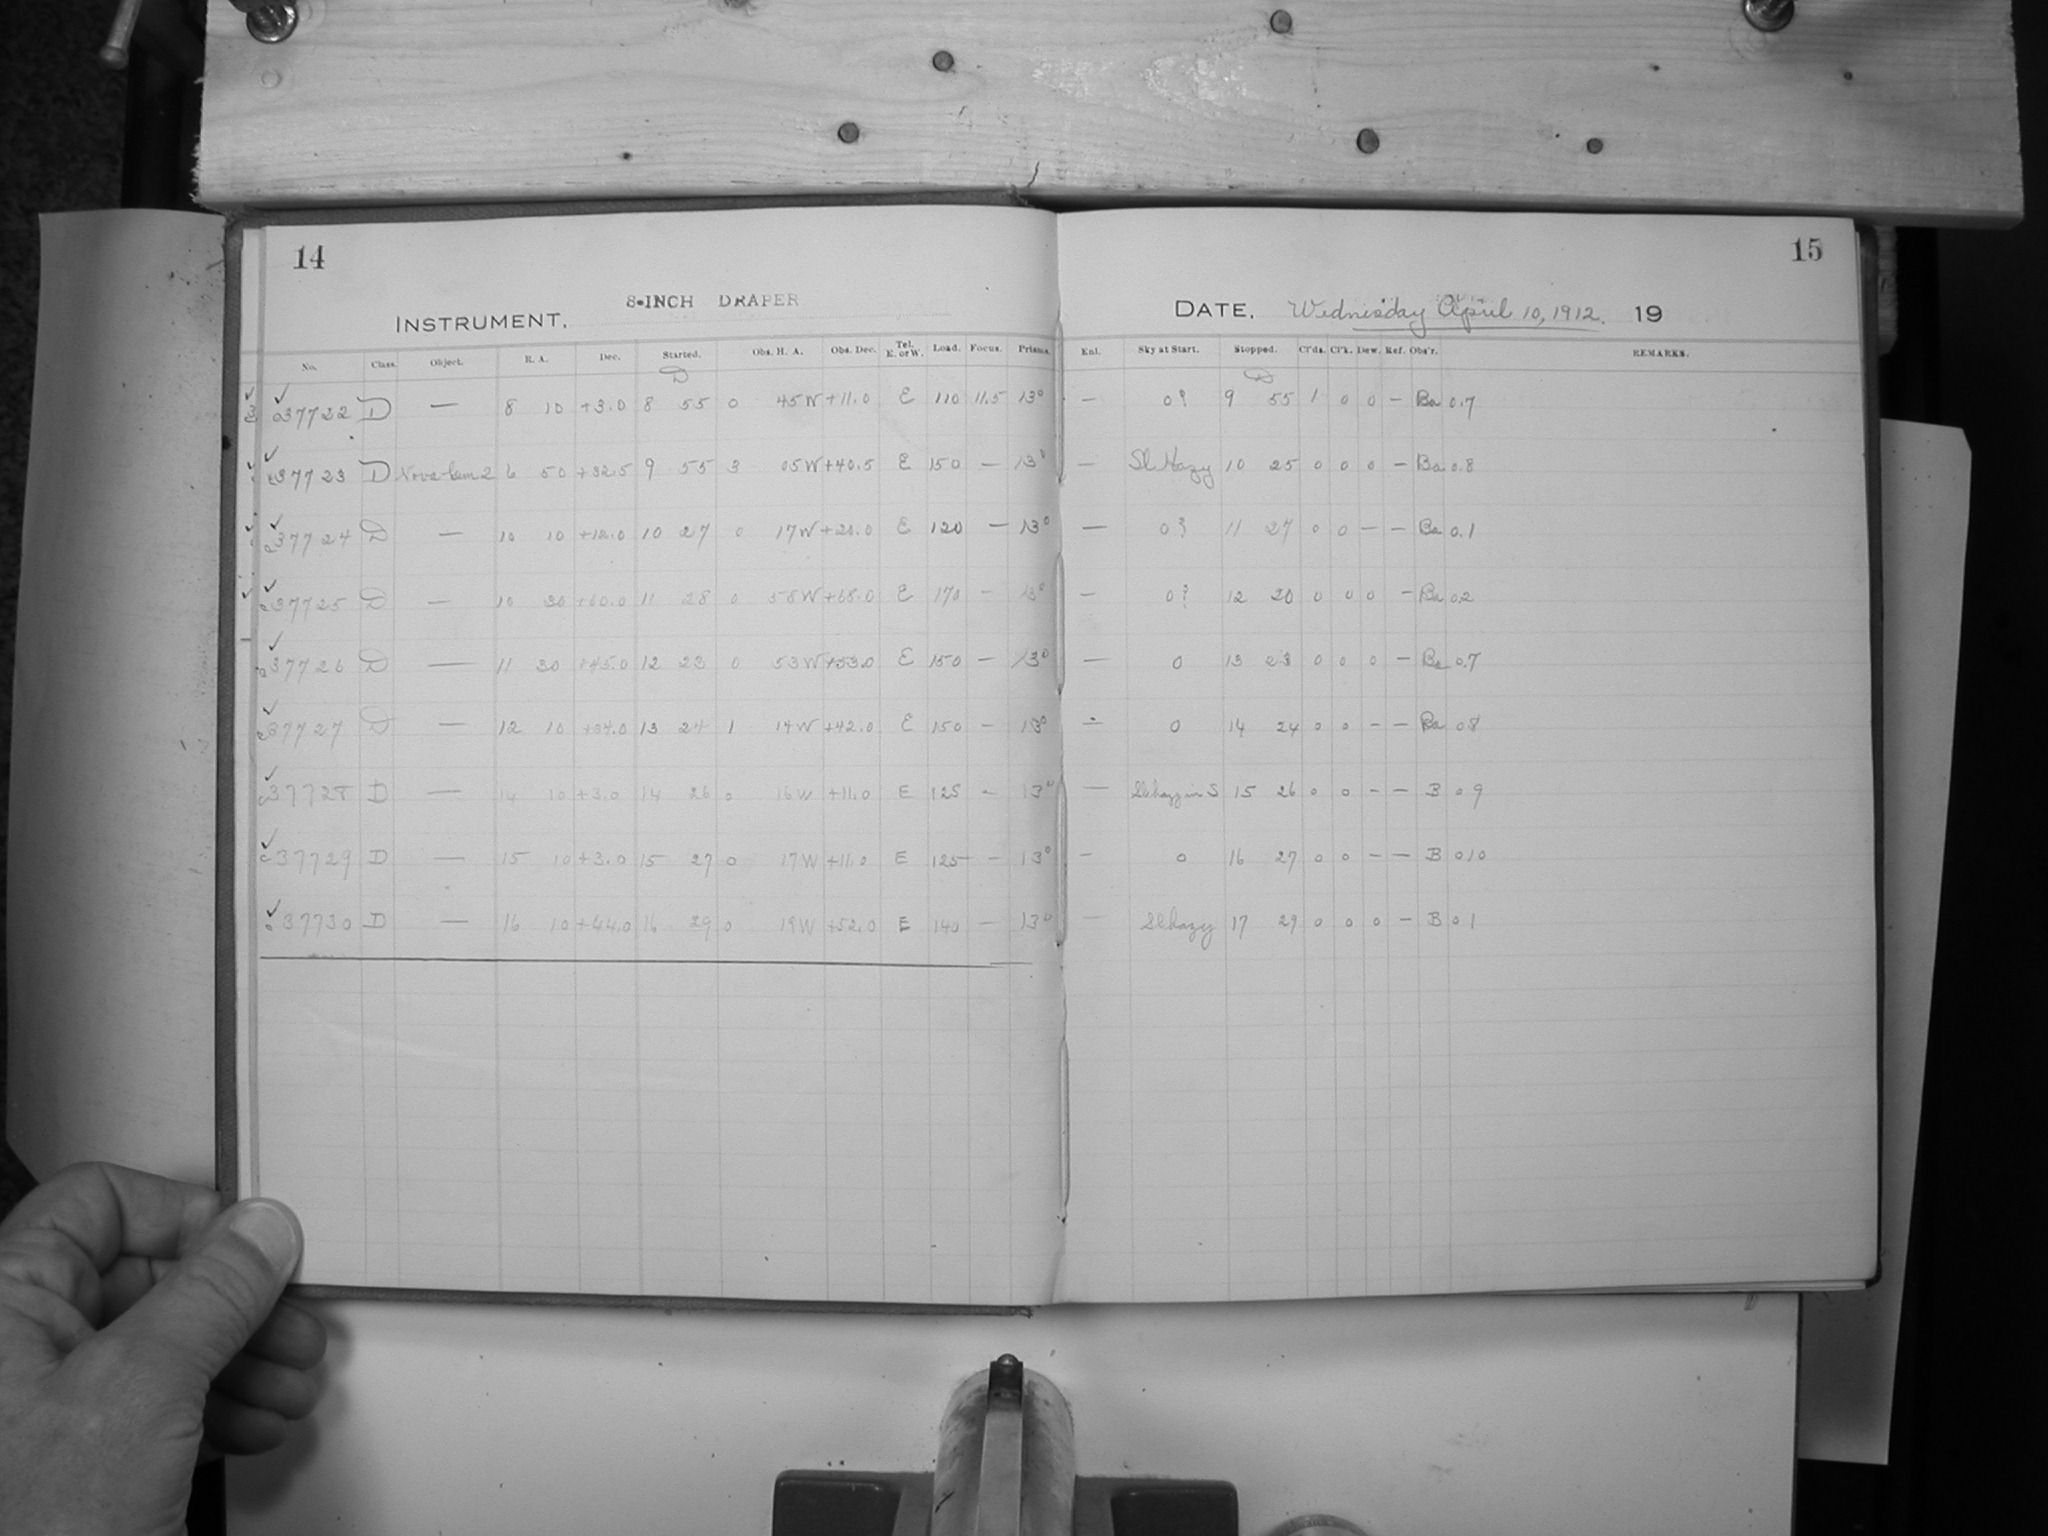 14
8-INCH DRAPER
INSTRUMENT.
No. Class. Object. R. A. Dec. Started. Obs. H. A. Obs. Dec. Tel. E. or W. Load. Focus. Prisms.
D
37722 D — 8 10 +3.0 8 55 0 45W +11.0 E 110 11.5 13°
37723 D Nova Gem 2 6 50 +32.5 9 55 3 05W +40.5 E 150 — 13°
37724 D — 10 10 +12.0 10 27 0 17W +20.0 E 120 — 13°
37725 D — 10 30 +60.0 11 28 0 58W +68.0 E 170 — 13°
37726 D — 11 30 +45.0 12 23 0 53W +53.0 E 150 — 13°
37727 D — 12 10 +34.0 13 24 1 14W +42.0 E 150 — 13°
37728 D — 14 10 +3.0 14 26 0 16W +11.0 E 125 — 13°
37729 D — 15 10 +3.0 15 27 0 17W +11.0 E 125 — 13°
37730 D — 16 10 +44.0 16 29 0 19W +52.0 E 140 — 13°
15
DATE. Wednesday April 10, 1912. 19
Enl. Sky at Start. Stopped. Cl'ds. Cl'k. Dew. Ref. Obs'r. REMARKS.
D
— 0? 9 55 1 0 0 — Ba 0.7
— Sl Hazy 10 25 0 0 0 — Ba 0.8
— 0? 11 27 0 0 — — Ba 0.1
— 0? 12 20 0 0 0 — Ba 0.2
— 0 13 23 0 0 0 — Ba 0.7
— 0 14 24 0 0 — — Ba 0.8
— Sl hazy in S 15 26 0 0 — — B 0 9
— 0 16 27 0 0 — — B 0 10
— Sl hazy 17 29 0 0 0 — B 0 1